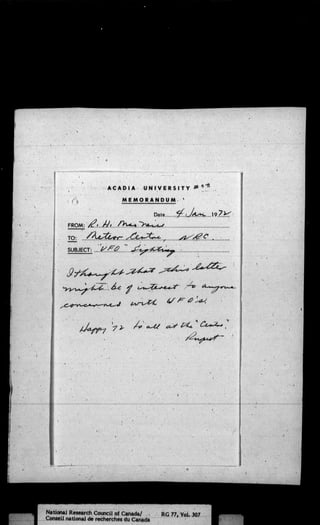 ACADIA UNIVERSITY
MEMORANDUM
Date 4 Jan 1972
FROM: R. H.
TO: Meteor Centre, NRC.
SUBJECT: "UFO" Sighting
I thought that this letter
might be of interest to anyone
concerned with UFO's.
Happy '72 to all at the "Centre".
National Research Council of Canada/ RG 77, Vol. 307
Conseil national de recherches du Canada